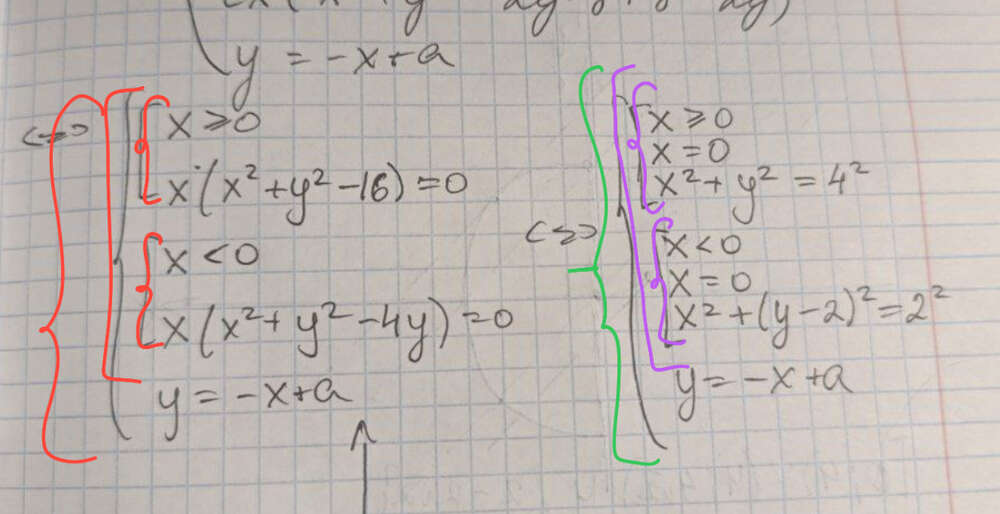 y = -x+a
<=> x ≥ 0
x (x² + y² - 16) = 0
x < 0
x (x² + y² - 4y) = 0
y = -x+a
<=> x ≥ 0
x = 0
x² + y² = 4²
x < 0
x = 0
x² + (y-2)² = 2²
y = -x+a